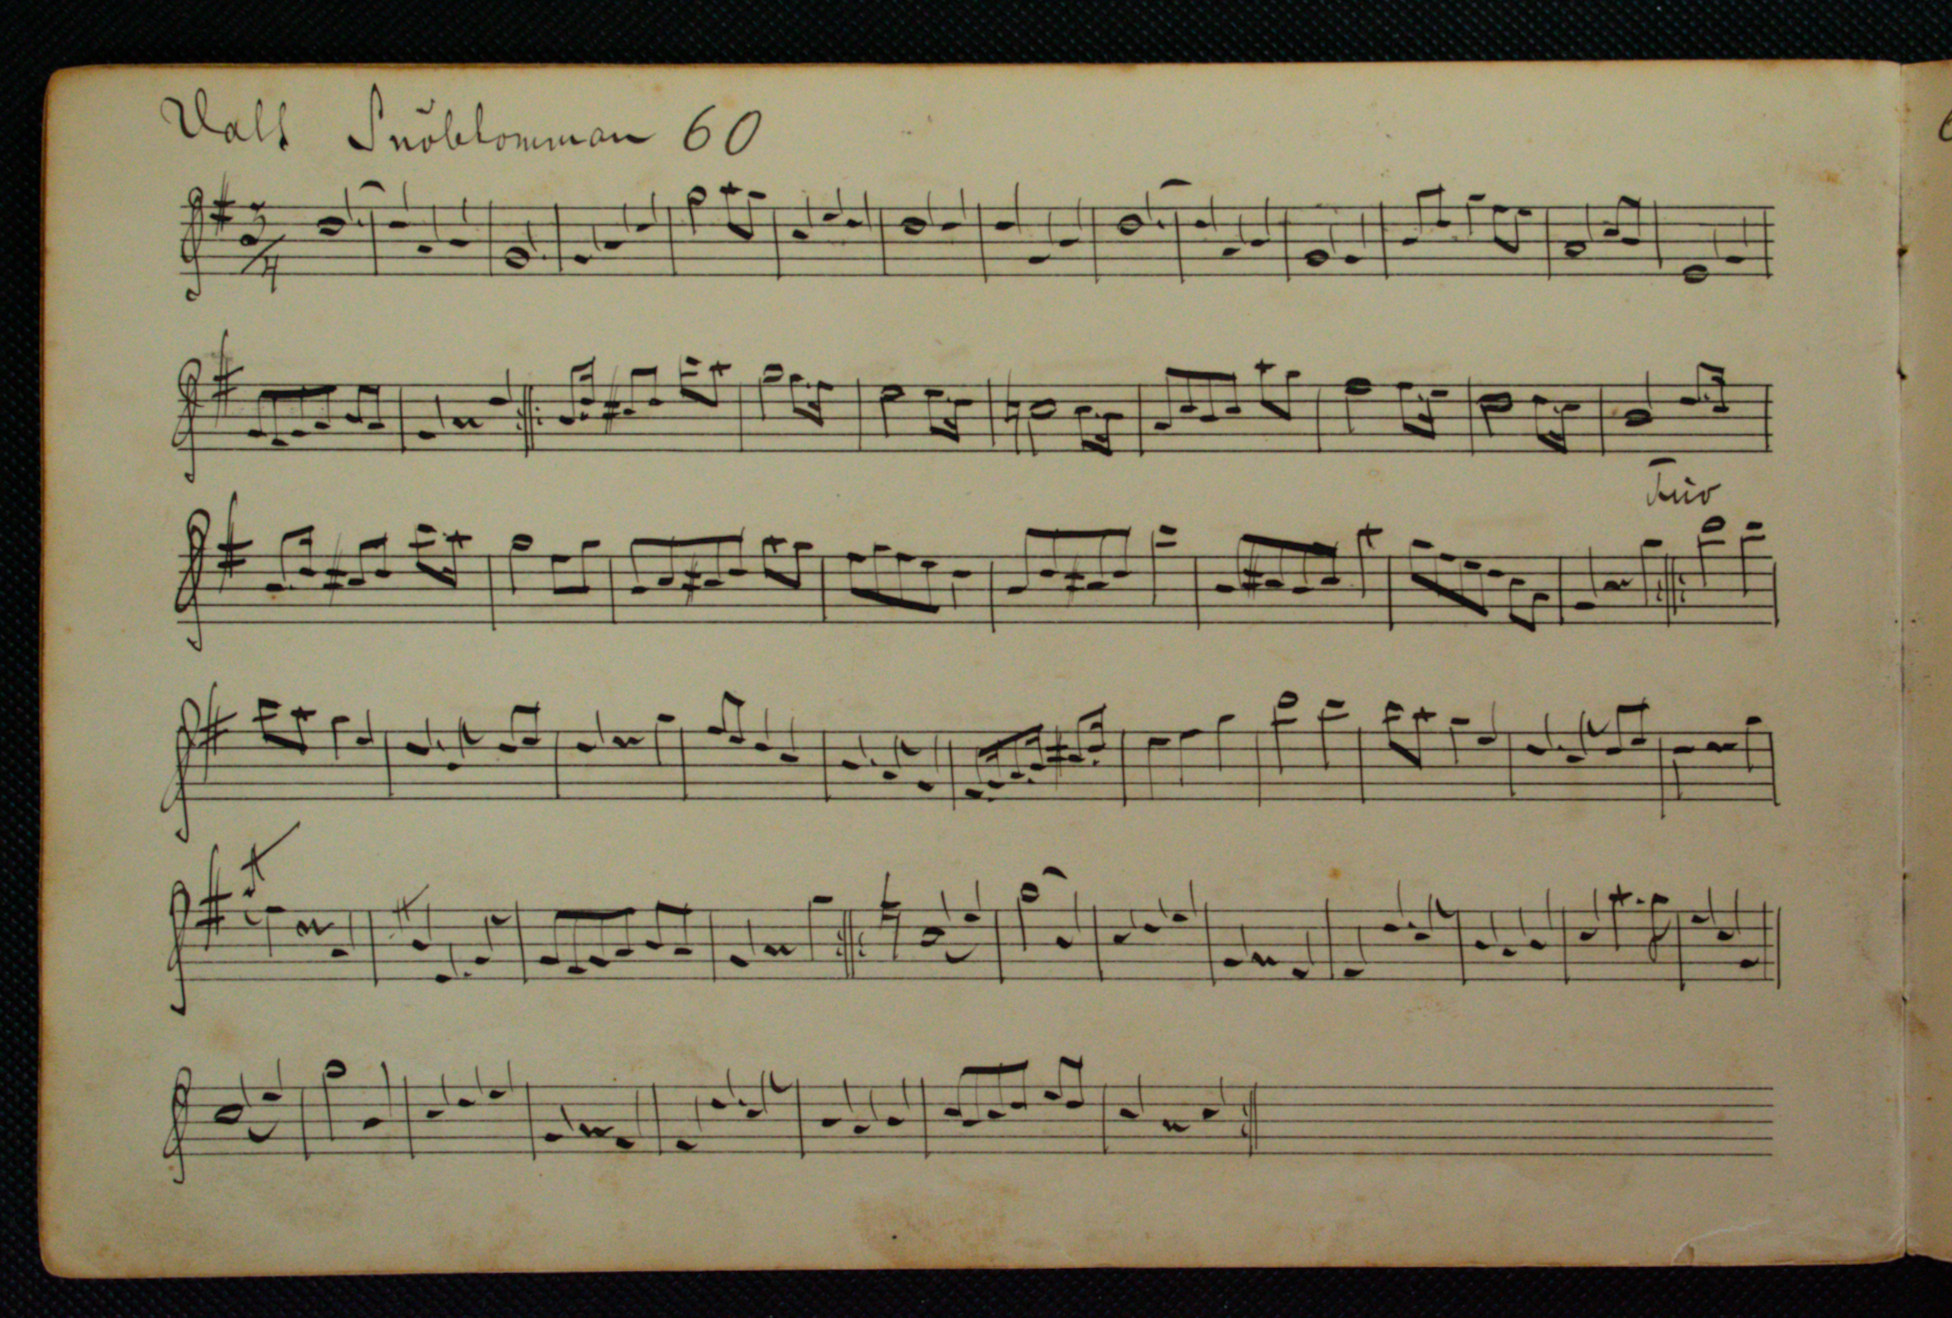 Vals Snöblomman 60
3/4
Trio